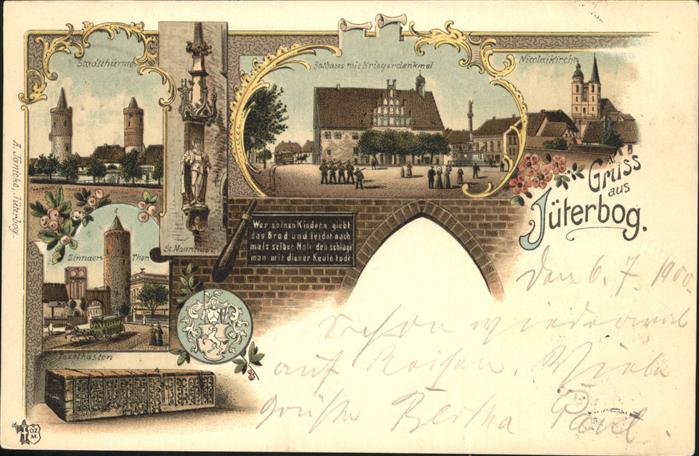 Stadtthürme
Rathaus mit Kriegerdenkmal
Nicolaikirche
St. Mauritius
Gruss
aus
Jüterbog.
Wer seinen Kindern giebt
das Brod und leidet nach
mals selber Noth den schlage
man mit dieser Keule todt
Zinnaer Thor
Tezelkasten
Jüterbog.
den 6. 7. 1900.
Schon wiedermal
auf Reisen. Viele
Grüße Bertha Paul.